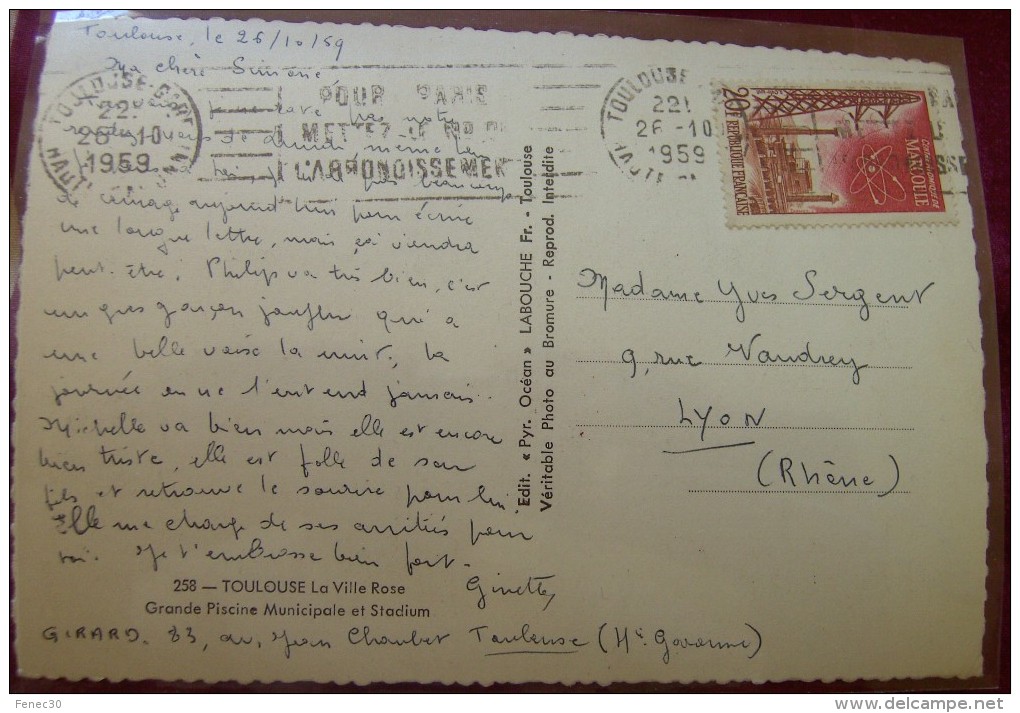 Toulouse, le 26/10/59
Ma chère Simone
de courage aujourd'hui pour écrire
une longue lettre, mais ça viendra
peut-être. Philip va très bien, c'est
un gros garçon joufflu qui a
une belle voise la nuit, la
journée on ne l'entend jamais.
Michelle va bien mais elle est encore
bien triste, elle est folle de son
fils et retrouve le sourire pour lui.
Elle me charge de ses amitiés pour
toi. Je t'embrasse bien fort.
Ginette
258 — TOULOUSE La Ville Rose
Grande Piscine Municipale et Stadium
GIRARD. 33, av. Jean Chaubet Toulouse (Hte Garonne)
TOULOUSE-GARE
26-10
1959
POUR PARIS
METTEZ LE
L'ARRONDISSEMENT
Edit. « Pyr. Océan » LABOUCHE Fr. - Toulouse
Véritable Photo au Bromure - Reprod. Interdite
TOULOUSE
26-10
1959
20F REPUBLIQUE FRANÇAISE
MARCOULE
Madame Yves Sergent
9, rue Vaudrey
LYON
(Rhône)
Fenec30
www.delcampe.net